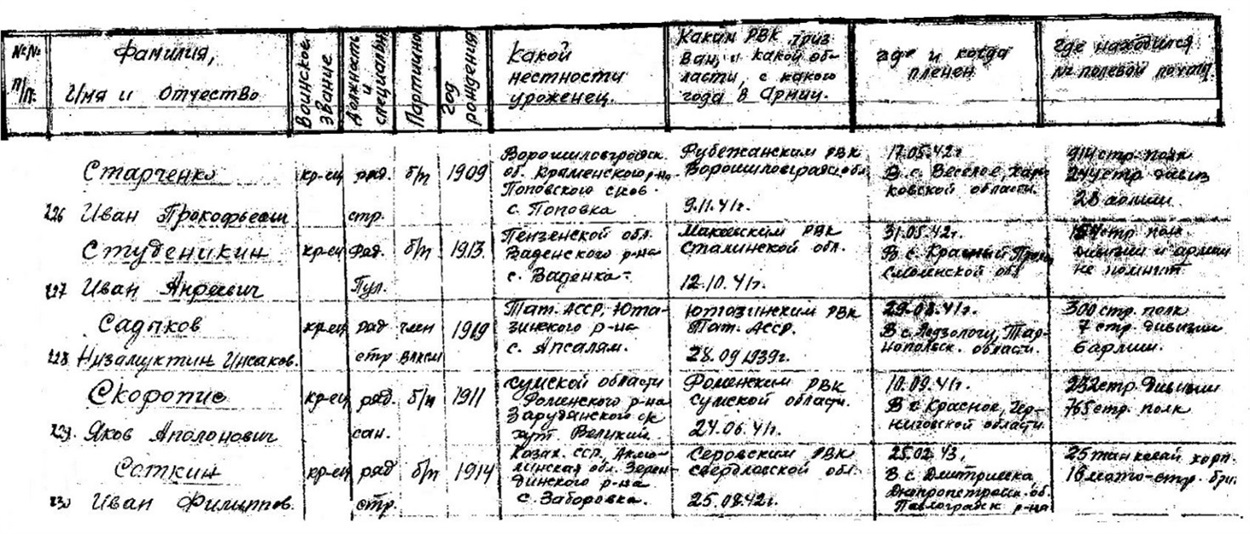 №№ п/п.
Фамилия,
Имя и Отчество
Воинское звание
Должность и специальн.
Партийно
Год рождения
Какой
местности
уроженец.
Каким РВК приз
ван, и какой об-
ласти, с какого
года в Армии.
где и когда
пленен
где находился
№ полевой почты
Старченко
226 Иван Прокофьевич
кр-ец
ряд.
стр.
б/п
1909
Ворошиловградск.
об. Краменского р-на
Поповского с/сов.
с. Поповка
Рубежанским РВК
Ворошиловградск обл
9.11.41г.
17.05.42г
В с. Веселое, Харь
ковской области.
914 стр. полк
244 стр. дивиз
28 армии.
Студеникин
227 Иван Андреевич
кр-ец
ряд.
Пул.
б/п
1913
Пензенской обл.
Ваденского р-на
с. Ваденка-
Макеевским РВК
Сталинской обл.
12.10.41г.
31.05.42г.
В с. Красный
Смоленской обл
стр полк
дивизии и армии
не помнит
Садыков
228 Низамуктин Инсаков.
кр-ец
ряд
стр
член
ВЛКСМ
1919
Тат. АССР, Юта-
зинского р-на
с. Апсалям.
Ютазинским РВК
Тат. АССР.
28.09 1939г.
29.08.41г.
В с. Подзологи, Тар-
нопольск. области.
300 стр. полк
7 стр. дивизии
6 армии.
Скоропис
229. Яков Аполонович
кр-ец
ряд.
сан.
б/п
1911
Сумской области
Роменского р-на
Зарудянского с/с
хут. Великий
Роменским РВК
Сумской области.
24.06.41г.
10.09.41г.
В с Красное, Чер-
ниговской области.
232 стр. дивизии
765 стр. полк
Соткин
230 Иван Филиппов.
кр-ец
ряд
стр.
б/п
1914
Казах. ССР, Акмо-
линская обл. Зерен-
динского р-на
с. Заборовка.
Серовским РВК
Свердловской обл.
25.08.42г.
25.02.43.
В с Дмитриевка
Днепропетровск. об.
Павлоградск р-на
25 танковый корп.
16 мото-стр. бри.